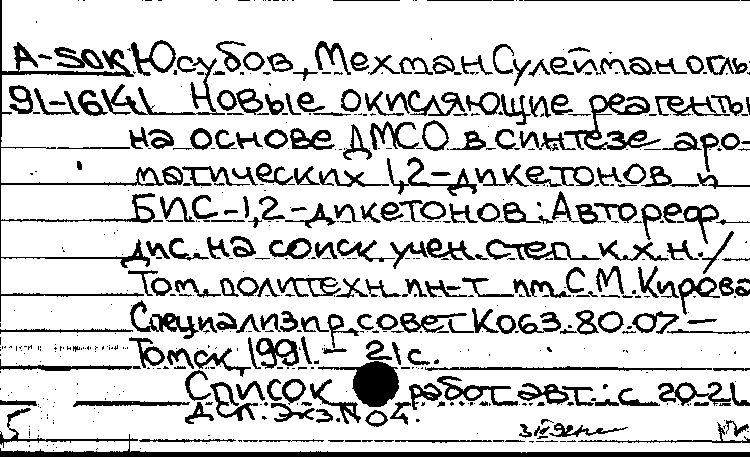 А-SOK Юсубов, Мехман Сулейман оглы
91-16141 Новые окисляющие реагенты
на основе ДМСО в синтезе аро-
матических 1,2-дикетонов и
БИС-1,2-дикетонов: Автореф.
дис. на соиск. учен. степ. к.х.н. /
Том. политехн. ин-т им. С.М. Кирова
Специализир. совет К063.80.07.-
Томск, 1991.- 21 с.
Список работ авт.: с 20-21
ДСП. Экз. N 04.
5